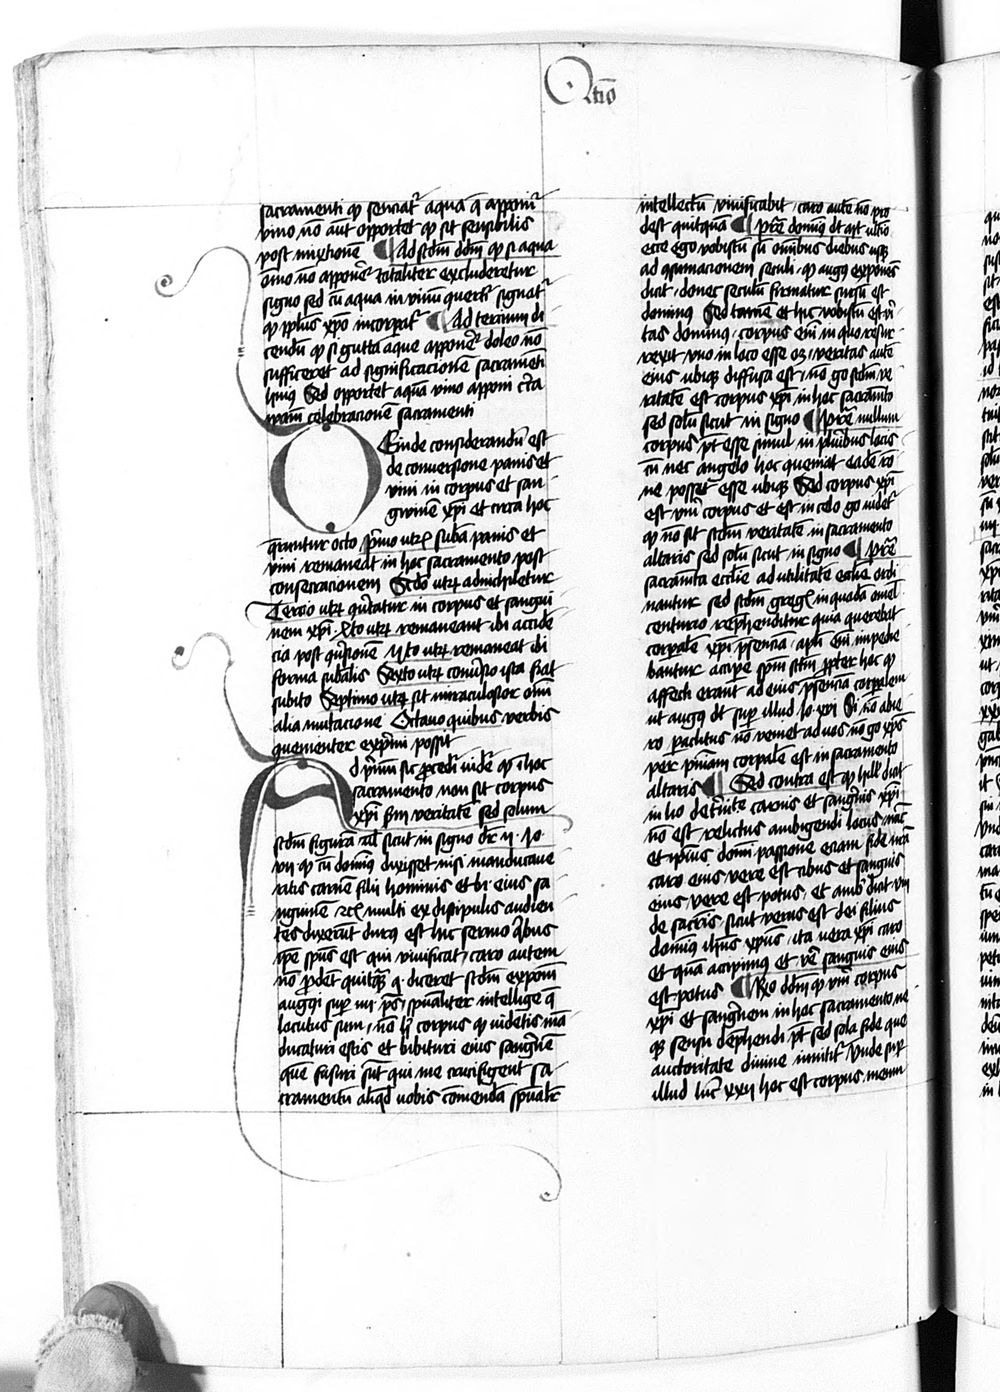 Q̄tio
sacramenti ꝙ seruat᷑ aqua q̄ apponit᷑
vino nō aūt opportet ꝙ sit sensibilis
post mixtionē ¶ Ad scdm ddm̄ ꝙ si aqua
oīno nō apponet᷑ totaliter excluderetur
signo sed cū aqua in vinū
ꝙ ppl̄us xp̄o incorpat᷑ ¶ Ad tercium di
cendū ꝙ si gutta aque apponet᷑ doleo nō
sufficeret ad significacionē sacramēti
hꝰ Sed opportet aquā vino apponi c̄ca
ip̄am celebracionē sacramenti
Deinde considerandū est
de conuersione panis et
vini in corpus et san
gwinē xp̄i et circa hoc
q̄runtur octo p̄mo utrꝫ sub̄a panis et
vini remaneat in hoc sacramento post
consecracionem Scdo utrꝫ adnichiletur
Tercio utrꝫ cōu̓tatur in corpus et sangui
nem xp̄i 4to utrꝫ remaneant ibi accide
cia post cōuersione 5to utrꝫ remaneat ibi
forma sub̄alis Sexto utrꝫ conuersio ista fiat
subito Septimo utrꝫ sit miraculosior om̄i
alia mutacione Octauo quibus verbis
conuenienter exp̄mi possit
Ad p̄mū sic p̄cedit᷑ uidet᷑ ꝙ i hoc
sacramento non sit corpus
xp̄i sm̄ veritatē sed solum
scdm figurā uel sicut in signo dr̄ .n. Jo
vi ꝙ cū domīꝰ dixisset nisi manducaue
ritis carnē filii hominis et bi. eiꝰ sa
ngwinē ⁊cꝫ multi ex discipulis audien
tes dixerūt durꝰ est hic sermo q̄bus
ip̄e sp̄us est qui viuificat caro autem
nō p̄dest quitq̄ꝫ q. diceret scdm exponi
augꝰi sup̄ iiii ps̄. sp̄ualiter intellige q̄
locutus sum, nō h̄ corpus qd̄ uidetis mā
ducaturi estis et bibituri eiꝰ sangwinē
quē fusuri sūt qui me crucifigent sa
cramentū aliqd̄ uobis cōmendaui sp̄ualit᷑
intellectū viuificabit, caro autē nō pro
dest quitquā ¶ p̄rea domīꝰ dt mt̄ ultīo
ecce ego vobiscū sū oīnibus diebus usqꝫ
ad ꝯsumacionem seculi, ꝙ augꝰ exponēs
dicit, donec seculū finiatur sursū est
dominꝰ Sed tamē et hic vobiscū est v̓i
tas dominꝰ, corpus eīm in quo resur
rexit uno in loco esse oꝫ, veritas autē
eius ubiqꝫ diffusa est, nō go scdm ve
ritatē est corpus xp̄i in hoc sacram̄to
sed solū sicut in signo ¶ p̄rea nullum
corpus pt̄ esse simul in pluribus locis
cū nec angelo hoc cōueniat eadē rō
ne posset esse ubiqꝫ Sed corpus xp̄i
est verū corpus et est in celo go uidet᷑
ꝙ nō sit scdm veritatē in sacramento
altaris sed solū sicut in signo ¶ p̄rea
sacram̄ta ecclīe ad utilitatē eccl̄ie ordi
nantur sed scdm gregꝫ in quadā omel
centurio rep̄henditur quia querebat
corporalē xp̄i p̄senciā, apl̄i eīm impedie
bantur accipe sp̄m sctm̄ p̄pter hoc ꝙ
affecti erant ad eiꝰ p̄senciā corpalem
ut augꝰ dt sup̄ illud Jo xvi Si nō abie
ro paclitus nō veniet ad uos nō go xp̄s
per p̄nciam corpalē est in sacramento
altaris ¶ Sed contra est ꝙ hill' dicit
in lio de t̓nitate carnis et sangwinis xp̄i
nō est relictus ambigendi locus nūc
et ip̄ius dom̄i passione eciam fide nr̄a
caro eius vere est cibus et sanguis
eius vere est potus, et amb' dicit vi
de sacr̄is sicut verus est dei filius
dominꝰ ih̄us xp̄us, ita vera xp̄i caro
et quā accipimꝰ et v̄e sanguis eius
est potus ¶ Rō ddm̄ ꝙ verū corpus
xp̄i et sangwinem in hoc sacramento ne
qꝫ sensu dep̄hendi pt̄ sed sola fide que
auctoritate diuine innitit᷑ Unde sup̄
illud luc̄ xxij hoc est corpus meum